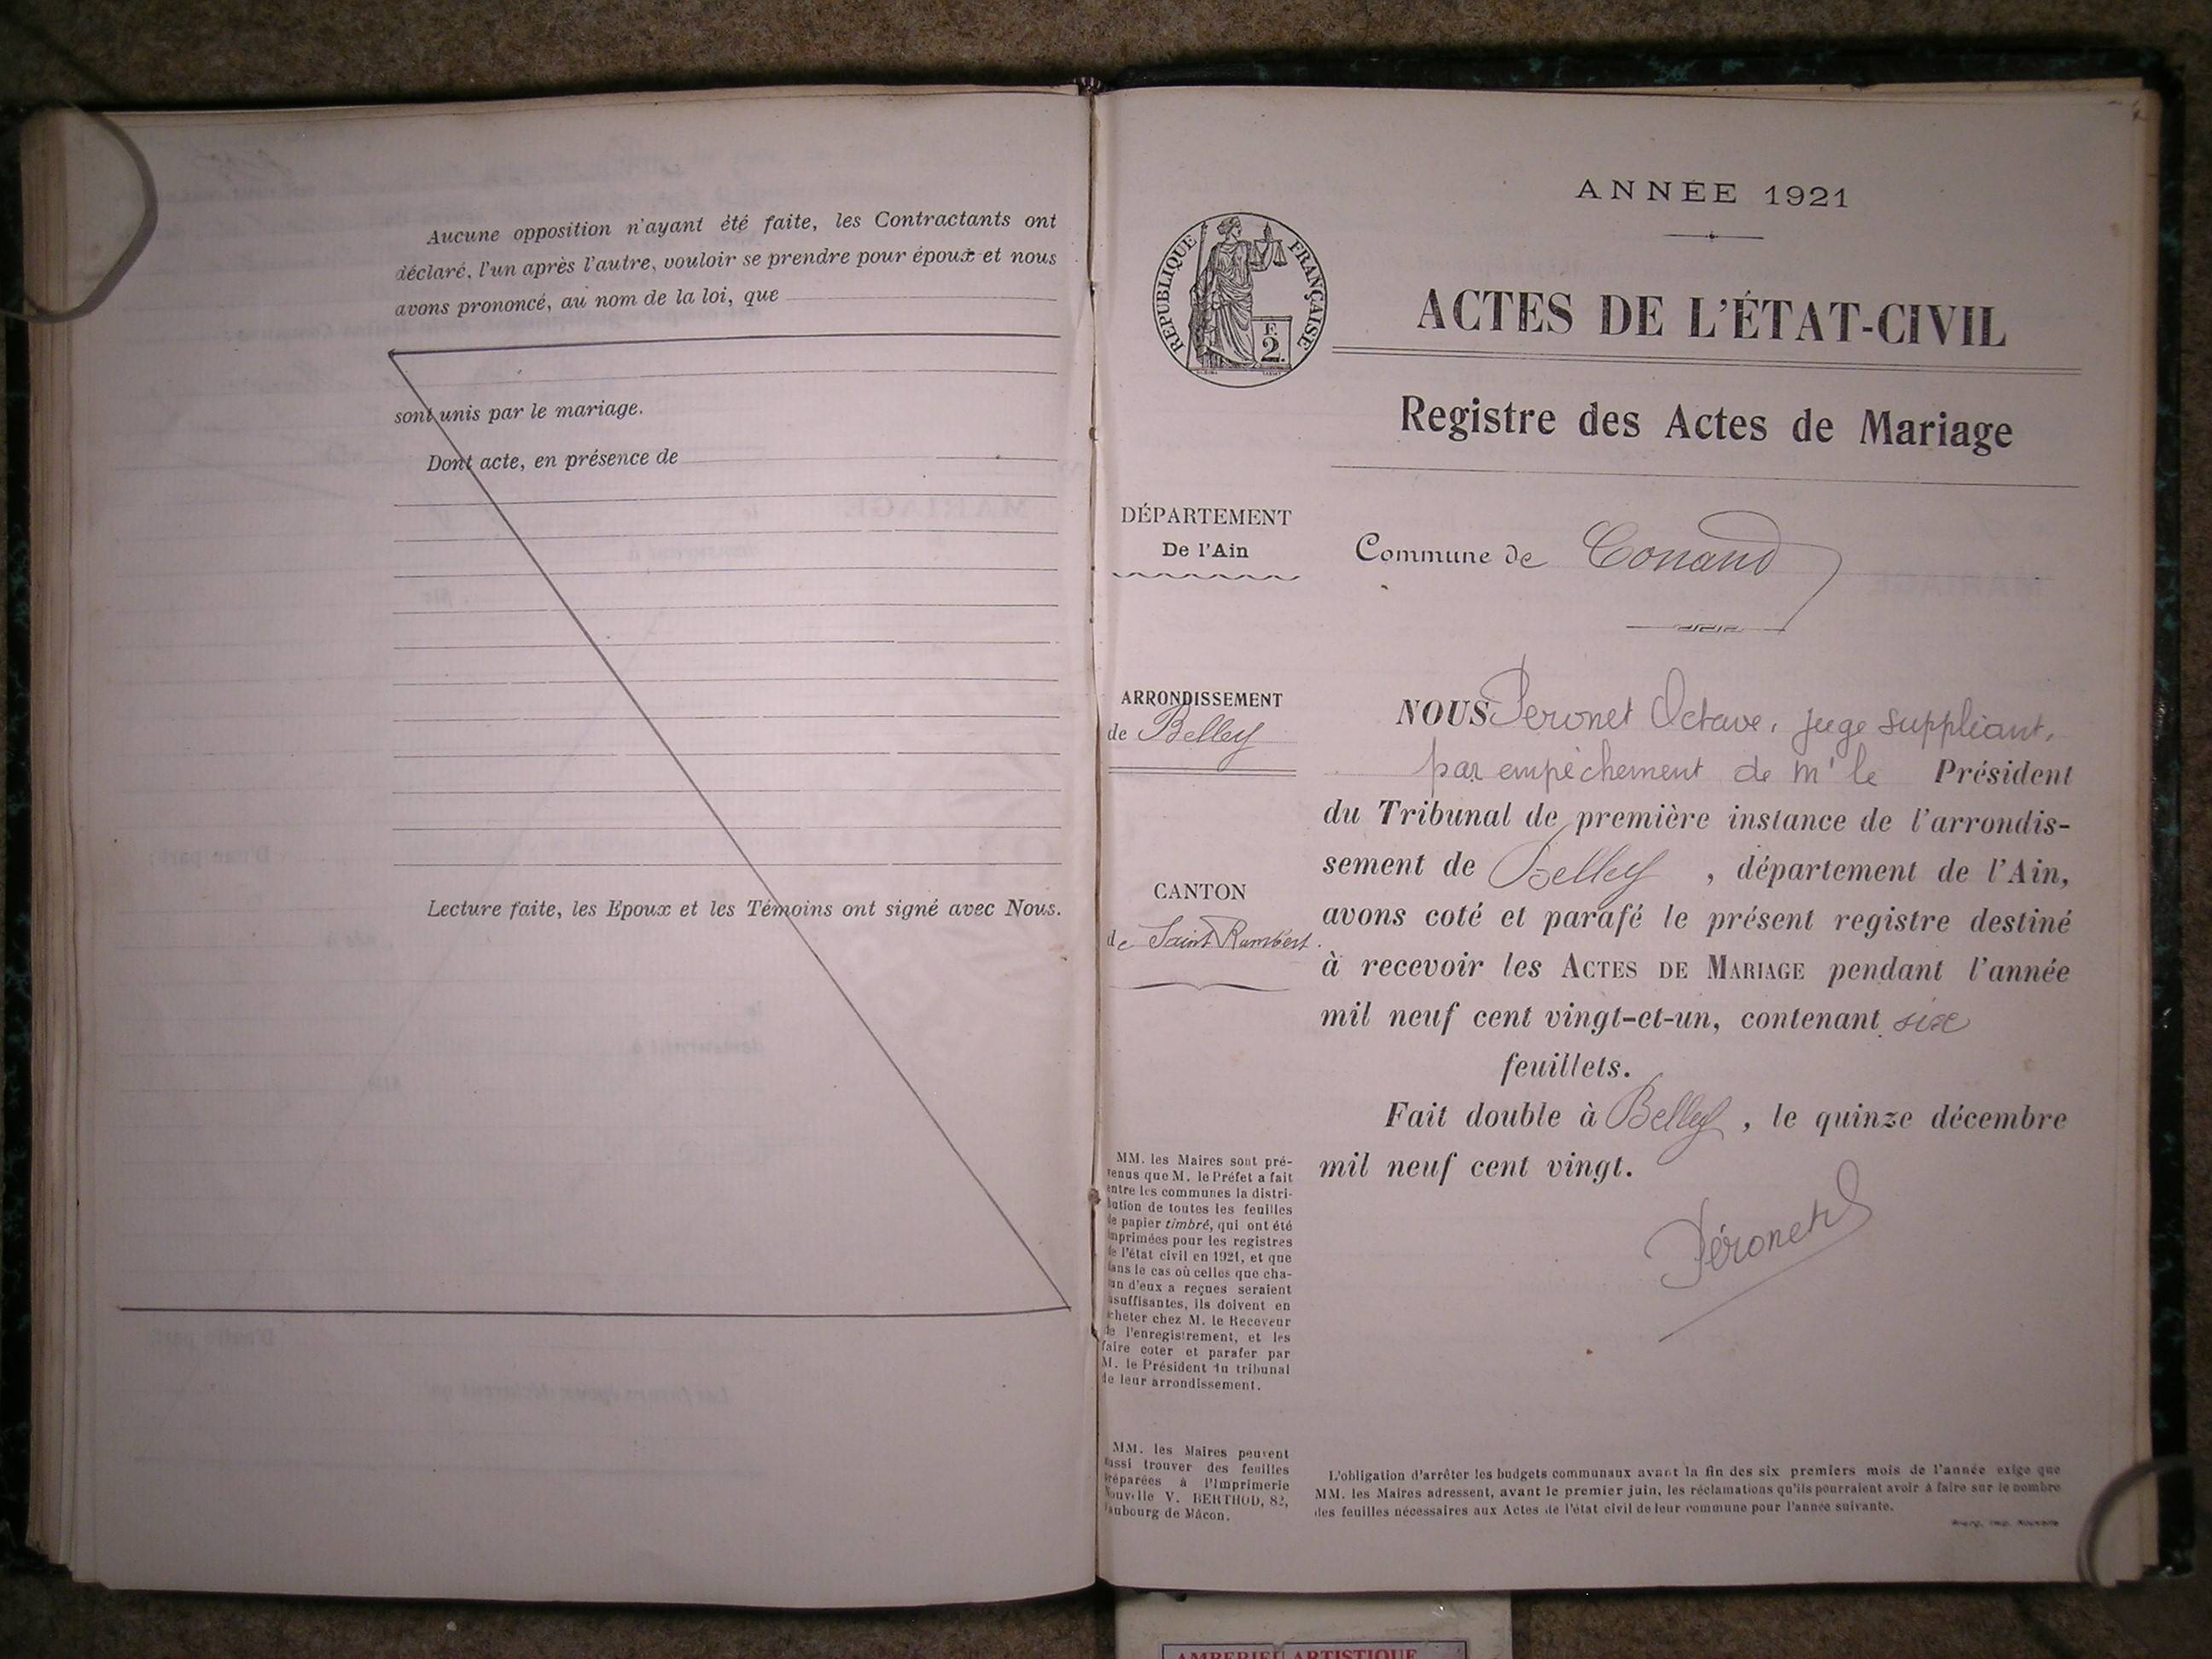 Aucune opposition n'ayant été faite, les Contractants ont
déclaré, l'un après l'autre, vouloir se prendre pour époux et nous
avons prononcé, au nom de la loi, que
sont unis par le mariage.
Dont acte, en présence de
Lecture faite, les Epoux et les Témoins ont signé avec Nous.
ANNÉE 1921
RÉPUBLIQUE FRANÇAISE
F.
2.
ACTES DE L'ÉTAT-CIVIL
Registre des Actes de Mariage
DÉPARTEMENT
De l'Ain
Commune de Conand
ARRONDISSEMENT
de Belley
CANTON
de Saint Rambert.
NOUS Peronet Octave, juge suppliant,
par empêchement de mr le Président
du Tribunal de première instance de l'arrondis-
sement de Belley, département de l'Ain,
avons coté et parafé le présent registre destiné
à recevoir les ACTES DE MARIAGE pendant l'année
mil neuf cent vingt-et-un, contenant six
feuillets.
Fait double à Belley, le quinze décembre
mil neuf cent vingt.
Péronet
MM. les Maires sont pré-
venus que M. le Préfet a fait
entre les communes la distri-
bution de toutes les feuilles
de papier timbré, qui ont été
imprimées pour les registres
de l'état civil en 1921, et que
dans le cas où celles que cha-
un d'eux a reçues seraient
insuffisantes, ils doivent en
acheter chez M. le Receveur
de l'enregistrement, et les
faire coter et parafer par
M. le Président du tribunal
de leur arrondissement.
MM. les Maires peuvent
aussi trouver des feuilles
préparées à l'Imprimerie
Nouvelle V. BERTHOD, 82,
faubourg de Mâcon.
L'obligation d'arrêter les budgets communaux avant la fin des six premiers mois de l'année exige que
MM. les Maires adressent, avant le premier juin, les réclamations qu'ils pourraient avoir à faire sur le nombre
des feuilles nécessaires aux Actes de l'état civil de leur commune pour l'année suivante.
Bourg, Imp. Nouvelle
AMBERIEU ARTISTIQUE